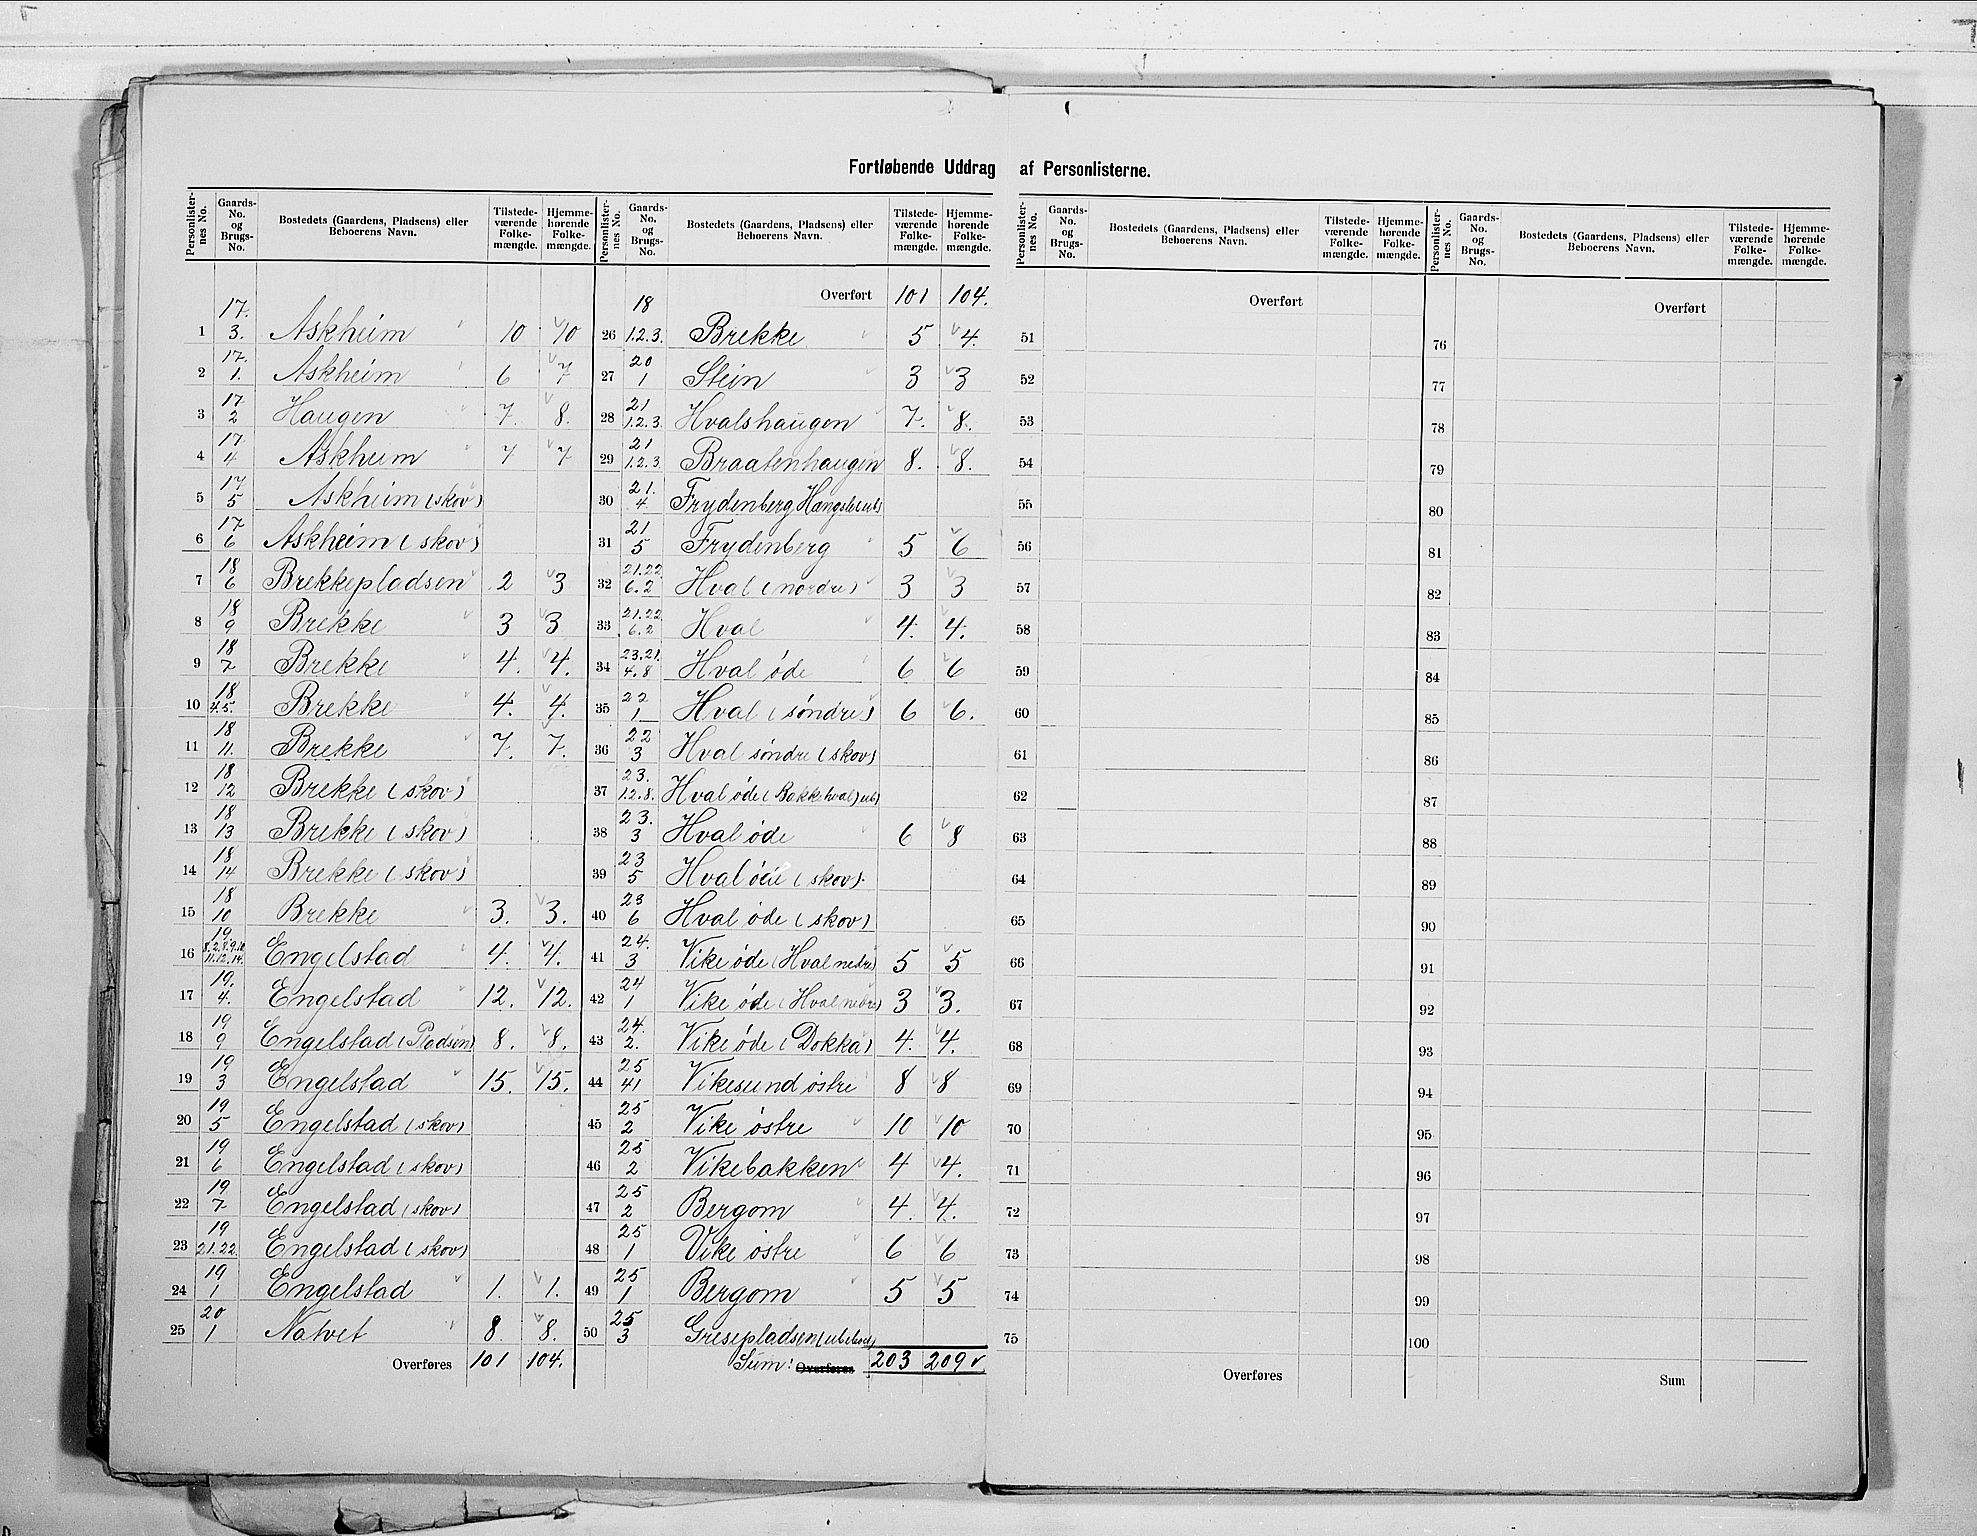 Fortløbende Uddrag af Personlisterne.
Personlisternes No. | Gaards-No. og Brugs-No. | Bostedets (Gaardens, Pladsens) eller Beboerens Navn. | Tilstedeværende Folkemængde. | Hjemmehørende Folkemængde.
1 | 17. 3. | Askheim | 10 | 10
2 | 17. 1. | Askheim | 6 | 7
3 | 17 2 | Haugen | 7. | 8.
4 | 17 4 | Askheim | 7 | 7
5 | 17 5 | Askheim (skov)
6 | 17 6 | Askheim (skov)
7 | 18 6 | Brekkepladsen | 2 | 3
8 | 18 9 | Brekke | 3 | 3
9 | 18 7 | Brekke | 4. | 4.
10 | 18 4.5. | Brekke | 4. | 4.
11 | 18 11. | Brekke | 7. | 7.
12 | 18 12 | Brekke (skov)
13 | 18 13 | Brekke (skov)
14 | 18 14 | Brekke (skov)
15 | 18 10 | Brekke | 3. | 3.
16 | 19. 8.2.8.9.10. 11.12.14. | Engelstad | 4. | 4.
17 | 19. 4. | Engelstad | 12. | 12.
18 | 19 9 | Engelstad (Pladsen) | 8. | 8.
19 | 19 3 | Engelstad | 15. | 15.
20 | 19 5 | Engelstad (skov)
21 | 19 6 | Engelstad (skov)
22 | 19 7 | Engelstad (skov)
23 | 19 21.22. | Engelstad (skov)
24 | 19 1 | Engelstad | 1. | 1.
25 | 20 1 | Natvet | 8. | 8.
Overføres | 101 | 104.
Personlisternes No. | Gaards-No. og Brugs-No. | Bostedets (Gaardens, Pladsens) eller Beboerens Navn. | Tilstedeværende Folkemængde. | Hjemmehørende Folkemængde.
Overført | 101 | 104.
26 | 18 1.2.3. | Brekke | 5 | 4.
27 | 20 1 | Stein | 3 | 3
28 | 21 1.2.3. | Hvalshaugen | 7. | 8.
29 | 21 1.2.3. | Braatenhaugen | 8. | 8.
30 | 21. 4 | Frydenberg
31 | 21 5 | Frydenberg | 5 | 6
32 | 21.22. 6.2 | Hval (nordre) | 3 | 3
33 | 21.22. 6.2 | Hval | 4. | 4.
34 | 23.21. 4.8 | Hval øde | 6 | 6
35 | 22 1 | Hval (søndre) | 6 | 6.
36 | 22 3 | Hval søndre (skov)
37 | 23. 1.2.8. | Hval øde (Bakkehval) ub)
38 | 23. 3 | Hval øde | 6 | 8
39 | 23 5 | Hval øde (skov).
40 | 23 6 | Hval øde (skov)
41 | 24. 3 | Vike øde (Hval nedre) | 5 | 5
42 | 24 1 | Vike øde (Hval nedre) | 3 | 3.
43 | 24. 2. | Vike øde (Dokka) | 4. | 4.
44 | 25 41 | Vikesund østre | 8 | 8
45 | 25 2 | Vike østre | 10 | 10
46 | 25 2 | Vikebakken | 4 | 4.
47 | 25 2 | Bergom | 4. | 4.
48 | 25 1 | Vike østre | 6 | 6
49 | 25 1 | Bergom | 5 | 5
50 | 25 3 | Gresepladsen (ubebod)
Sum: Overføres | 203 | 209
Personlisternes No. | Gaards-No. og Brugs-No. | Bostedets (Gaardens, Pladsens) eller Beboerens Navn. | Tilstedeværende Folkemængde. | Hjemmehørende Folkemængde.
Overført
51
52
53
54
55
56
57
58
59
60
61
62
63
64
65
66
67
68
69
70
71
72
73
74
75
Overføres
Personlisternes No. | Gaards-No. og Brugs-No. | Bostedets (Gaardens, Pladsens) eller Beboerens Navn. | Tilstedeværende Folkemængde. | Hjemmehørende Folkemængde.
Overført
76
77
78
79
80
81
82
83
84
85
86
87
88
89
90
91
92
93
94
95
96
97
98
99
100
Sum